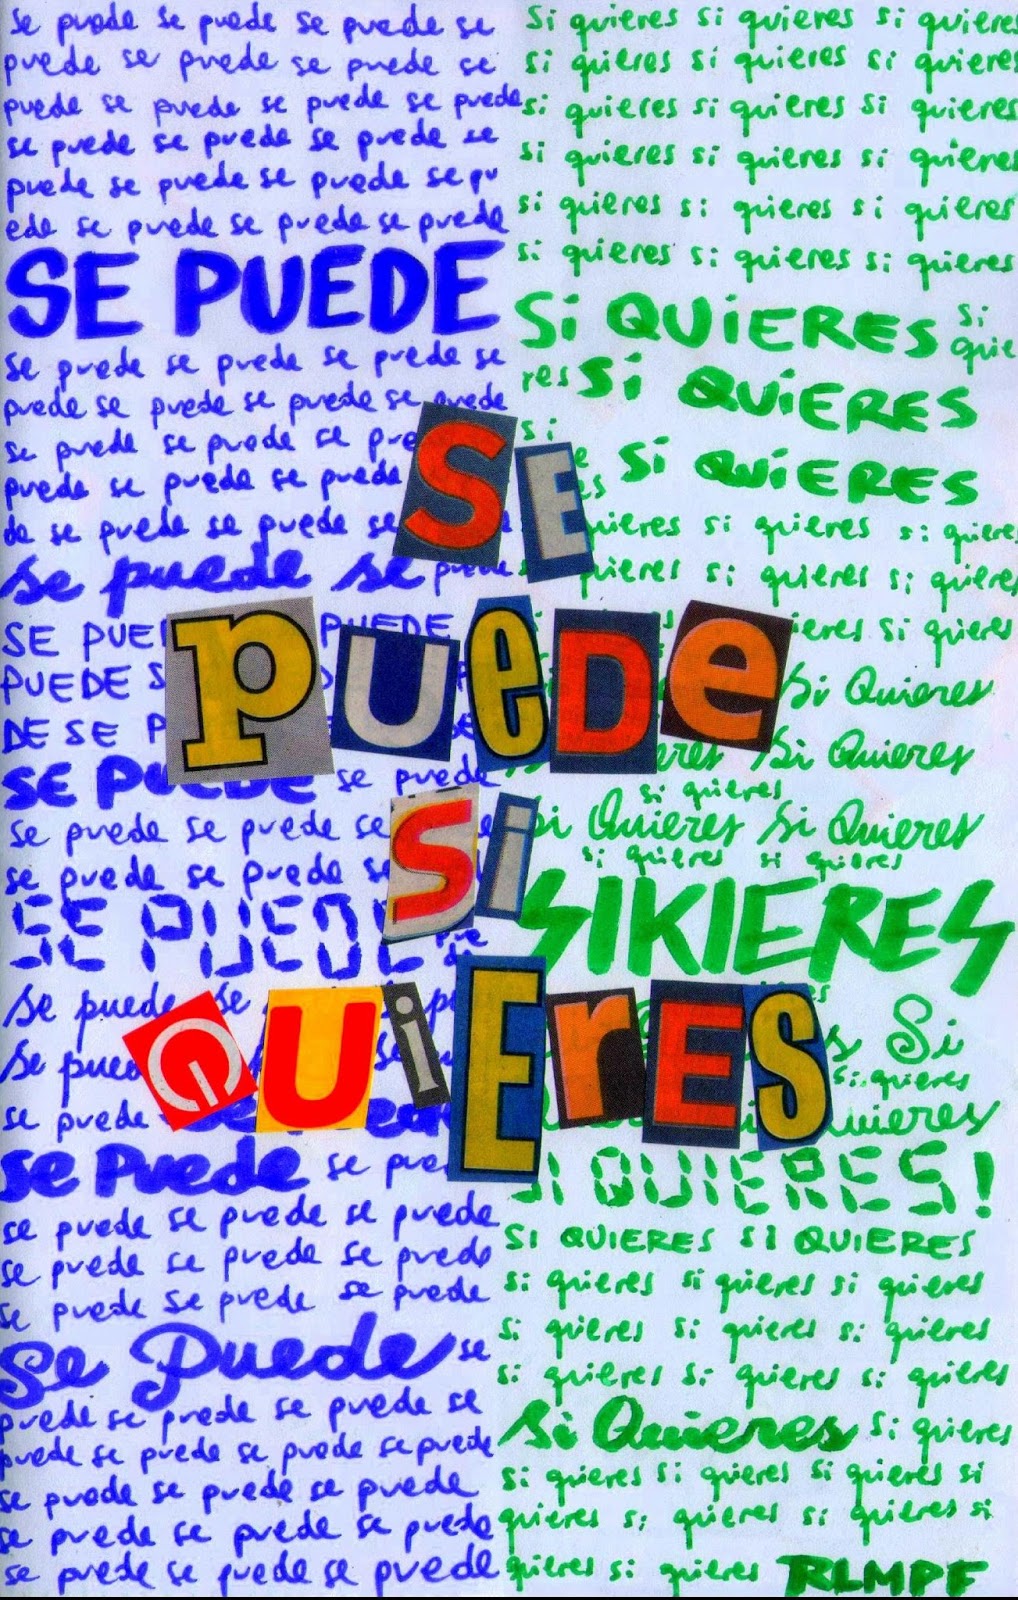 se puede se puede se puede se
puede se puede se puede se
puede se puede se puede se puede
se puede se puede se puede se
puede se puede se puede se pu
ede se puede se puede se puede
SE PUEDE
se puede se puede se puede se
puede se puede se puede se puede
se puede se puede se
puede se puede se puede
de se puede se puede se
se puede se puede
SE PUEDE
PUEDE
DE SE
SE PUEDE se puede
se puede se puede se
se puede se puede se
SE PUEDE
se puede se
se
se puede
se puede se
se puede se puede se puede
se puede se puede se puede
se puede se puede se puede
Se Puede se
puede se puede se puede se
puede se puede se puede se puede
se puede se puede se puede
se puede se puede se puede
se puede se puede se puede
SE
PUEDE
Si
QUiErES
si quieres si quieres si quieres
si quieres si quieres si quieres
si quieres si quieres si quieres
si quieres si quieres si quieres
si quieres si quieres si quieres
si quieres si quieres si quieres
Si QUiERES si
quie
res Si QUiERES
si
Si QUiERES
si quieres si quieres
si quieres si quieres
si quieres
Si Quieres
Si Quieres
si quieres
Si Quieres Si Quieres
si quieres si quieres
SIKIERES
Si
si quieres
quieres
SI QUIERES!
SI QUIERES SI QUIERES
si quieres si quieres si quieres
si quieres si quieres si quieres
si quieres si quieres si quieres
Si Quieres si quieres
si quieres si quieres si quieres si
quieres si quieres si quieres si
quieres si quieres RLMPF